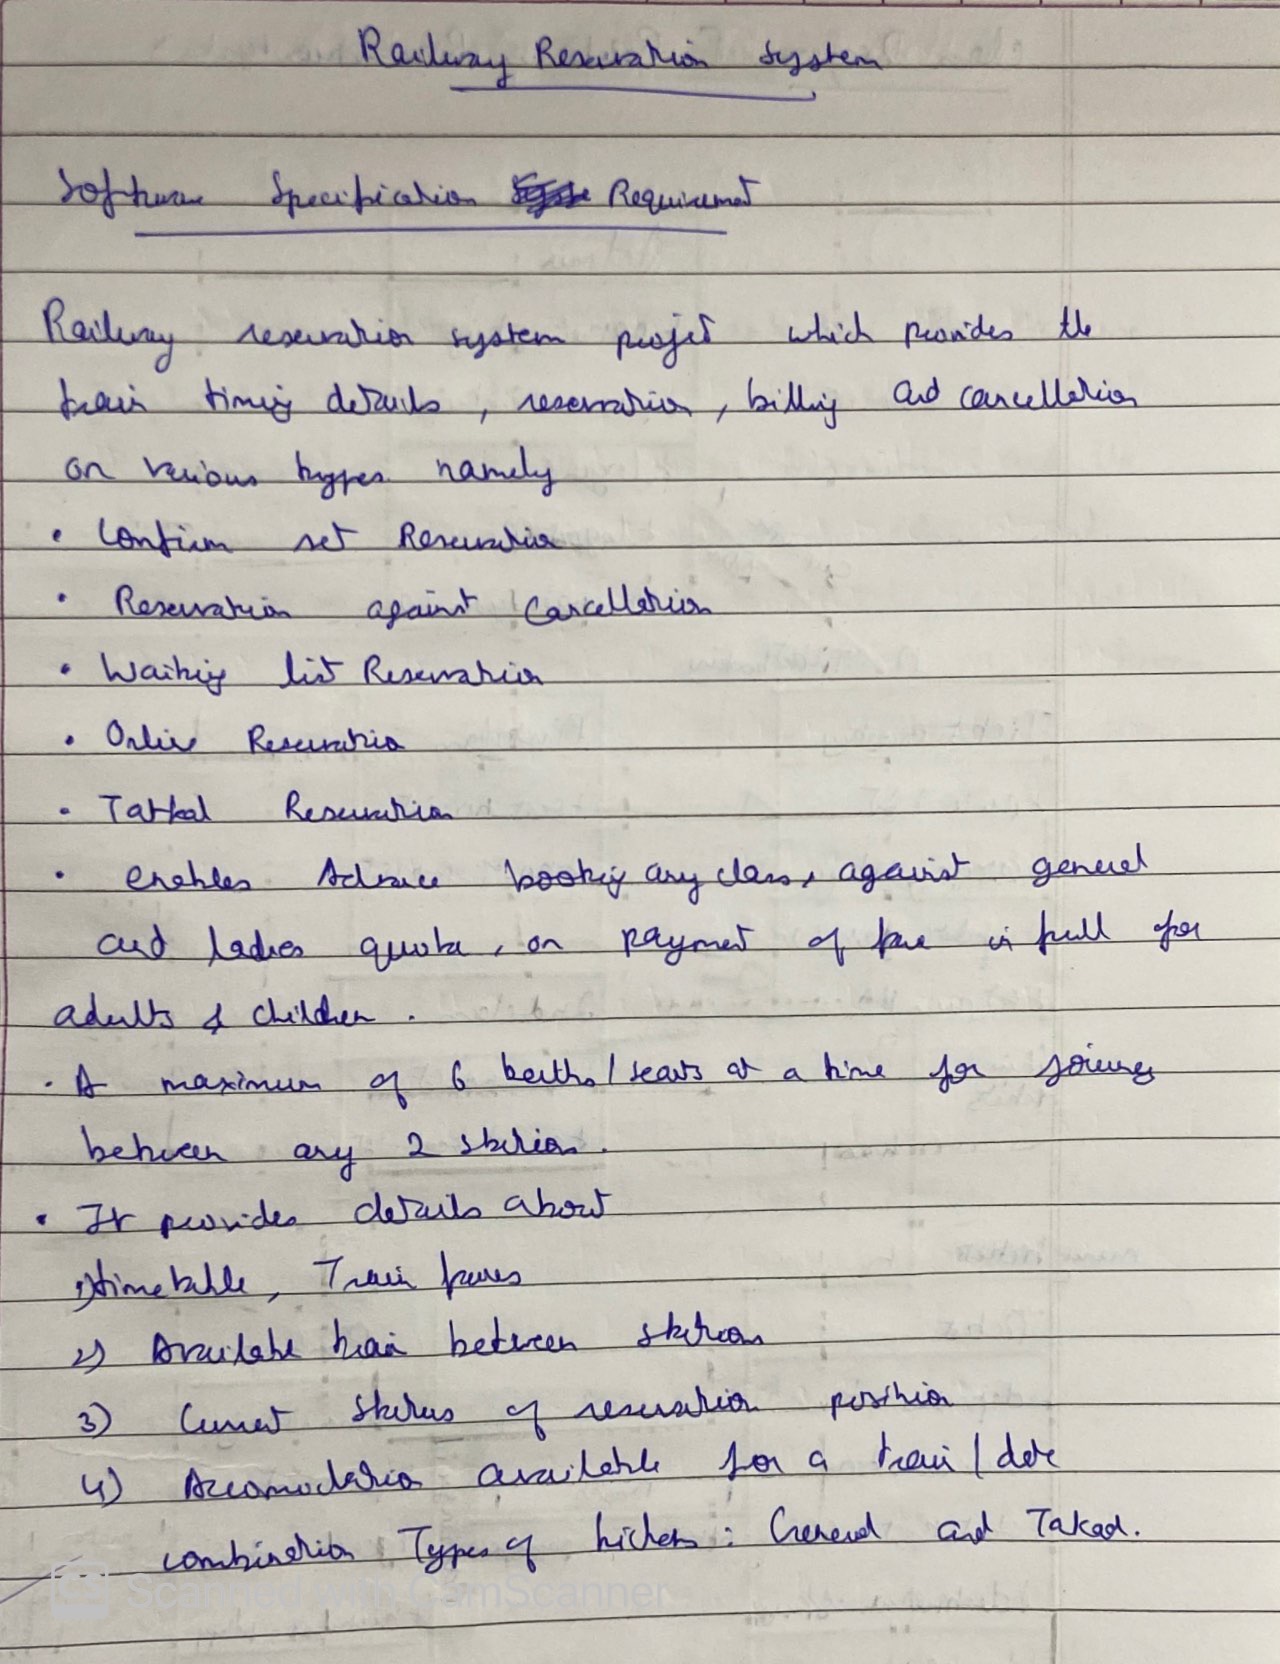 Railway Reservation System
Software Specification Requirement
Railway reservation system project which provides the
train timing details, reservation, billing and cancellation
on various types namely
• Confirm set Reservation
• Reservation against Cancellation
• Waiting list Reservation
• Online Reservation
• Tatkal Reservation
• enables Advance booking any class, against general
and ladies quota, on payment of fare in full for
adults & children.
• A maximum of 6 berths/seats at a time for joieney
between any 2 station.
• It provides details about
1) timetable, Train fares
2) Available train between stations
3) Current status of reservation position
4) Accomodation available for a train/date
combination Types of tickets: General and Takad.
Scanned with CamScanner